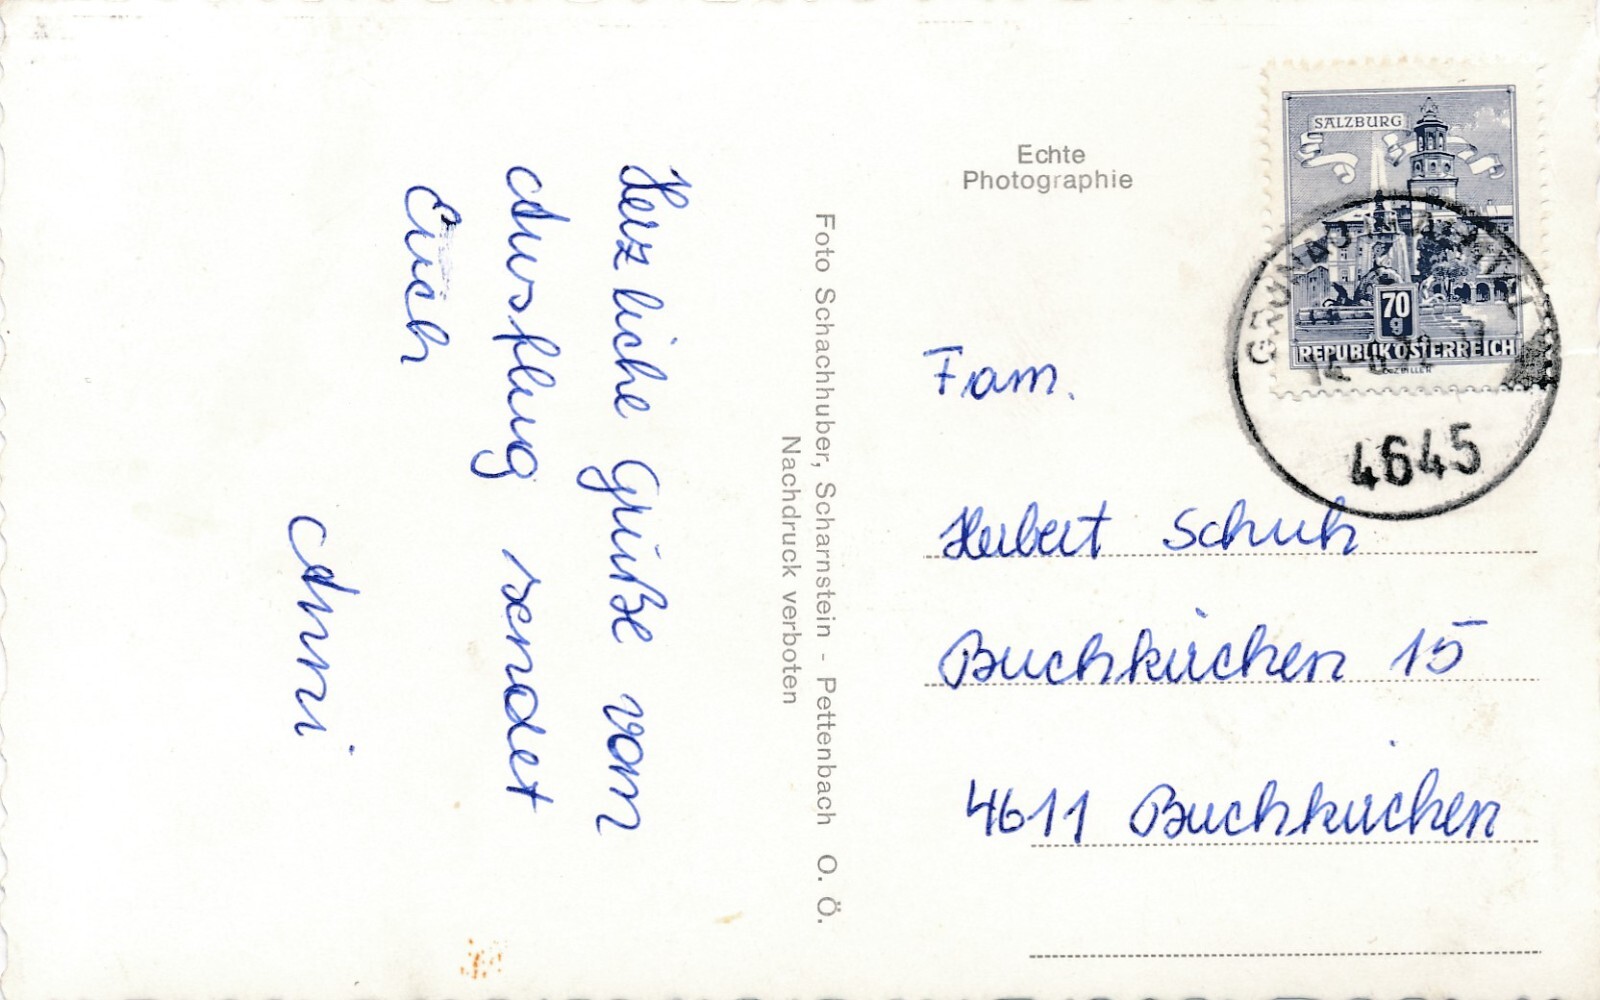 Herzliche Grüße vom
Ausflug sendet
Euch
Anni
Foto Schachhuber, Scharnstein - Pettenbach O. Ö.
Nachdruck verboten
Echte
Photographie
SALZBURG
70
g
REPUBLIK ÖSTERREICH
4645
Fam.
Herbert Schuh
Buchkirchen 15
4611 Buchkirchen